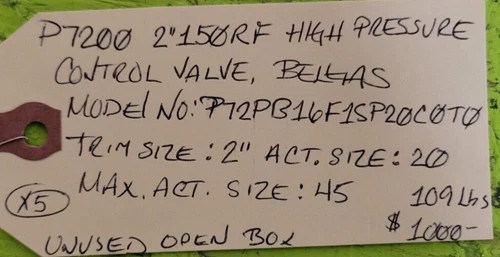 P7200 2" 150RF HIGH PRESSURE
CONTROL VALVE, BELGAS
MODEL NO: P72PB16F1SP20C0T0
TRIM SIZE: 2" ACT. SIZE: 20
MAX. ACT. SIZE: 45
109 Lbs
X5
$1000-
UNUSED OPEN BOX